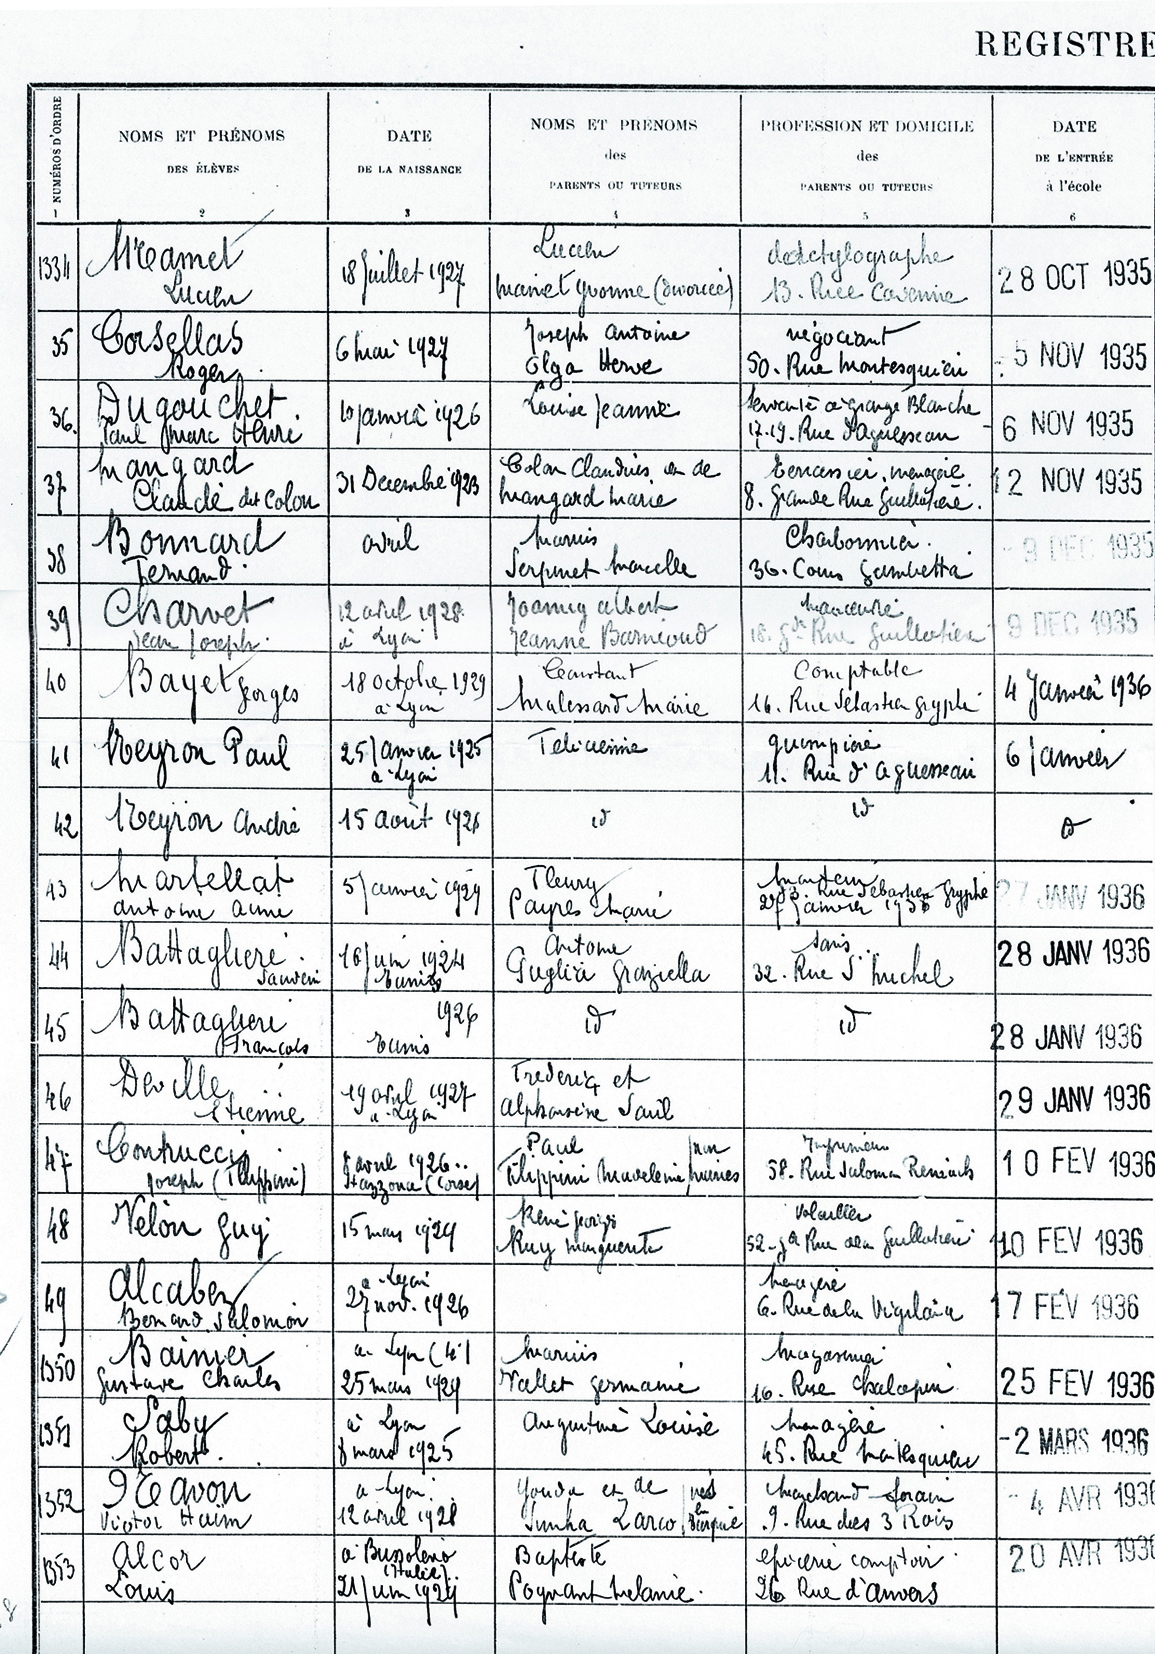 REGISTRE
NUMÉROS D'ORDRE
NOMS ET PRÉNOMS
DES ÉLÈVES
2
DATE
DE LA NAISSANCE
3
NOMS ET PRENOMS
des
PARENTS OU TUTEURS
4
PROFESSION ET DOMICILE
des
PARENTS OU TUTEURS
5
DATE
DE L'ENTRÉE
à l'école
6
Mamet
Lucien
18 Juillet 1927
Lucien
Yvonne (divorcée)
dactylographe
13. Rue Cavenne
28 OCT 1935
35
Corsellas
Roger
6 mai 1927
Joseph Antoine
Olga Herve
négociant
50. Rue Montesquieu
5 NOV 1935
36.
Dugouchet.
Paul Marc Henri
10 janvier 1926
Louise Jeanne
Grange Blanche
17.19. Rue d'Aguesseau
6 NOV 1935
37
Mangard
Claude dit Colon
31 Decembre 1923
Colon Claudius et de
Mangard Marie
Terrassier, menagère.
8. Grande Rue Guillotière.
12 NOV 1935
38
Bonnard
Fernand
avril
Marius
Serpinet Marcelle
Charbonnier.
36. Cours Gambetta
9 DEC 1935
39
Charvet
Jean Joseph.
12 avril 1928
à Lyon
Albert
Jeanne
manœuvre
18. Gde Rue Guillotière
9 DEC 1935
40
Bayet Georges
18 octobre 1929
à Lyon
Constant
Malessard Marie
Comptable
16. Rue Sébastien Gryphe
4 Janvier 1936
41
Neyron Paul
25 Janvier 1925
à Lyon
guimpière
11. Rue d'Aguesseau
6 Janvier
42
Neyron André
15 août 1926
id
id
43
Martellat
Antoine Aimé
5 Janvier 1929
Fleury
Payres Marie
Rue Sébastien Gryphe
27 janvier
27 JANV 1936
44
Battaglieri
16 juin 1924
Tunis
Antoine
Puglisi Graziella
sans
32. Rue St Michel
28 JANV 1936
45
Battaglieri
François
1926
Tunis
id
id
28 JANV 1936
46
Deville
Etienne
19 avril 1927
à Lyon
Frederic et
Alphonsine
29 JANV 1936
47
Contrucci
Joseph (Filippini)
8 avril 1926
Stazzona (Corse)
Paul
Filippini Madeleine
non mariés
Imprimeur
58. Rue Salomon Reinach
10 FEV 1936
48
Velon Guy
15 mars 1929
René Georges
Ruy Marguerite
Volailler
52 - Gde Rue de la Guillotière
10 FEV 1936
49
Alcabez
Bernard Salomon
à Lyon
27 nov. 1926
Menagère
6. Rue de la Vigilance
17 FEV 1936
1350
Bainier
Gustave Charles
à Lyon (4e)
25 mars 1929
Marius
Vallet Germaine
Magasinier
16. Rue Chalopin
25 FEV 1936
1351
Saby
Robert.
à Lyon
8 mars 1925
Augustine Louise
Menagère
45. Rue Montesquieu
-2 MARS 1936
1352
Navon
Victor Haïm
à Lyon.
12 avril 1928
Youda et de
Simha Zarco
nés en Turquie
Marchand forain
9. Rue des 3 Rois
-4 AVR 1936
1353
Alcor
Louis
à Bussoleno
(Italie)
21 juin 1924
Baptiste
Melanie.
epicerie comptoir
26 Rue d'Anvers
20 AVR 1936